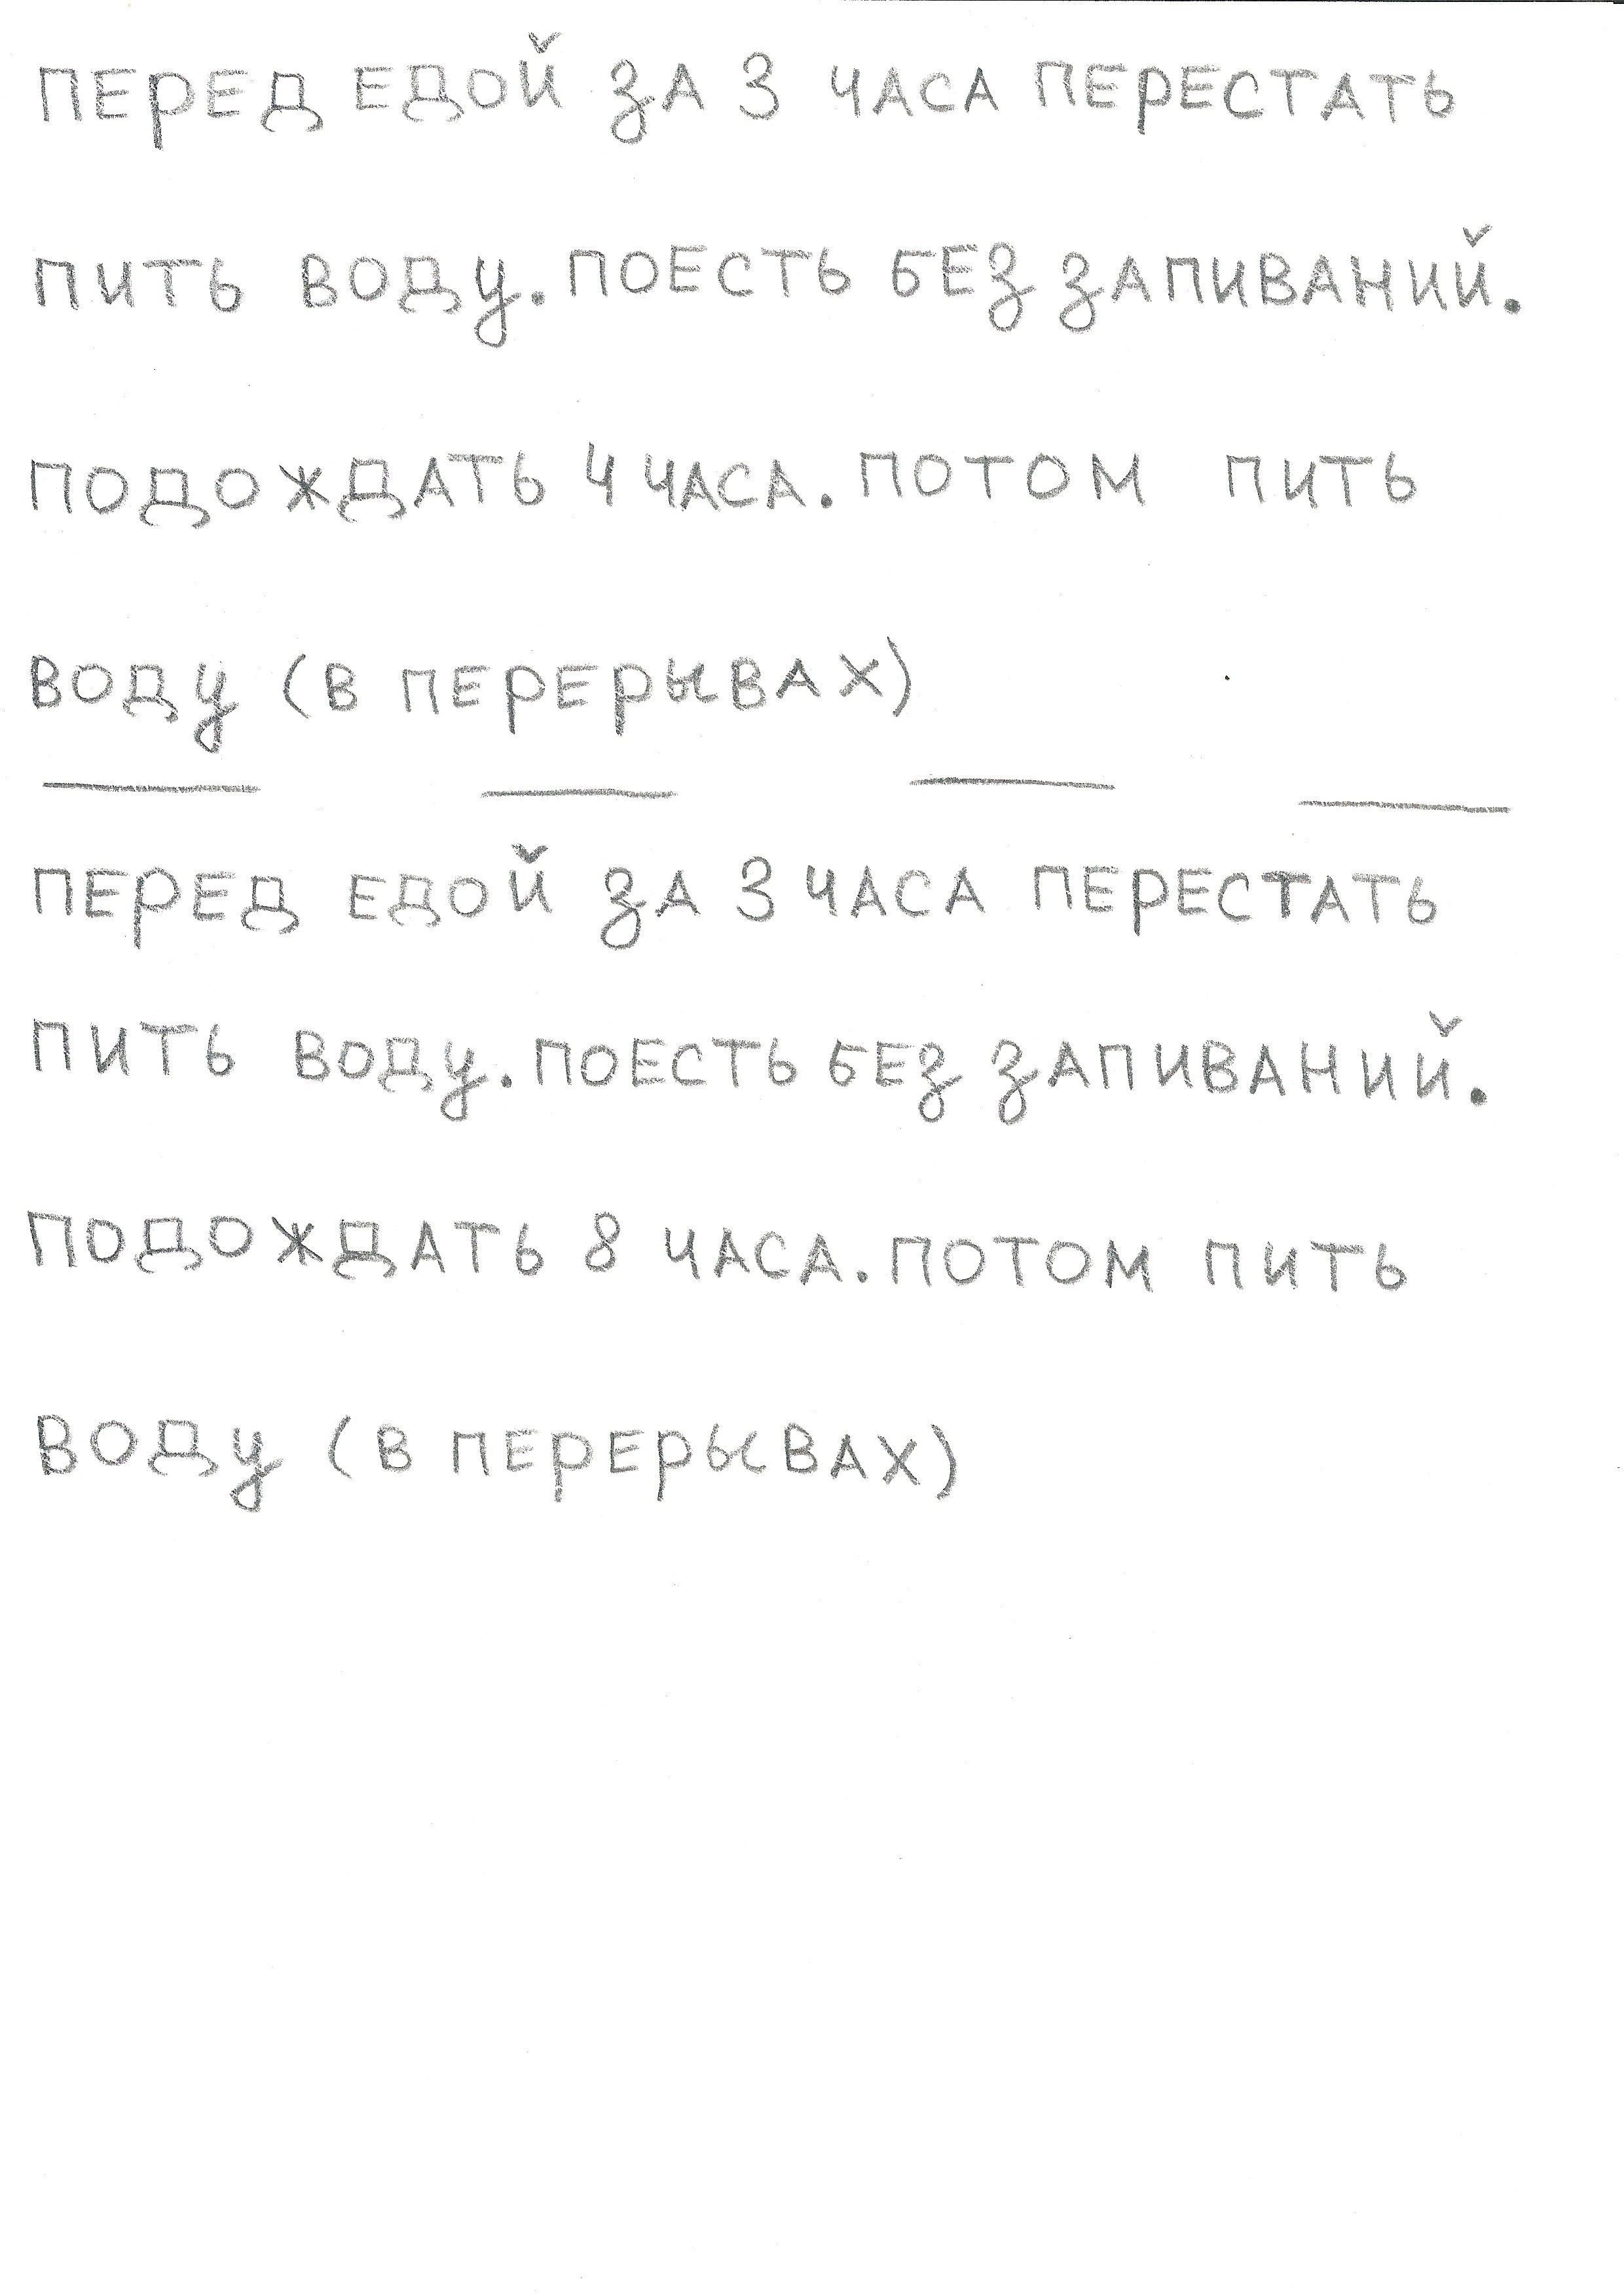 ПЕРЕД ЕДОЙ ЗА 3 ЧАСА ПЕРЕСТАТЬ
ПИТЬ ВОДУ. ПОЕСТЬ БЕЗ ЗАПИВАНИЙ.
ПОДОЖДАТЬ 4 ЧАСА. ПОТОМ ПИТЬ
ВОДУ (В ПЕРЕРЫВАХ)
ПЕРЕД ЕДОЙ ЗА 3 ЧАСА ПЕРЕСТАТЬ
ПИТЬ ВОДУ. ПОЕСТЬ БЕЗ ЗАПИВАНИЙ.
ПОДОЖДАТЬ 8 ЧАСА. ПОТОМ ПИТЬ
ВОДУ (В ПЕРЕРЫВАХ)